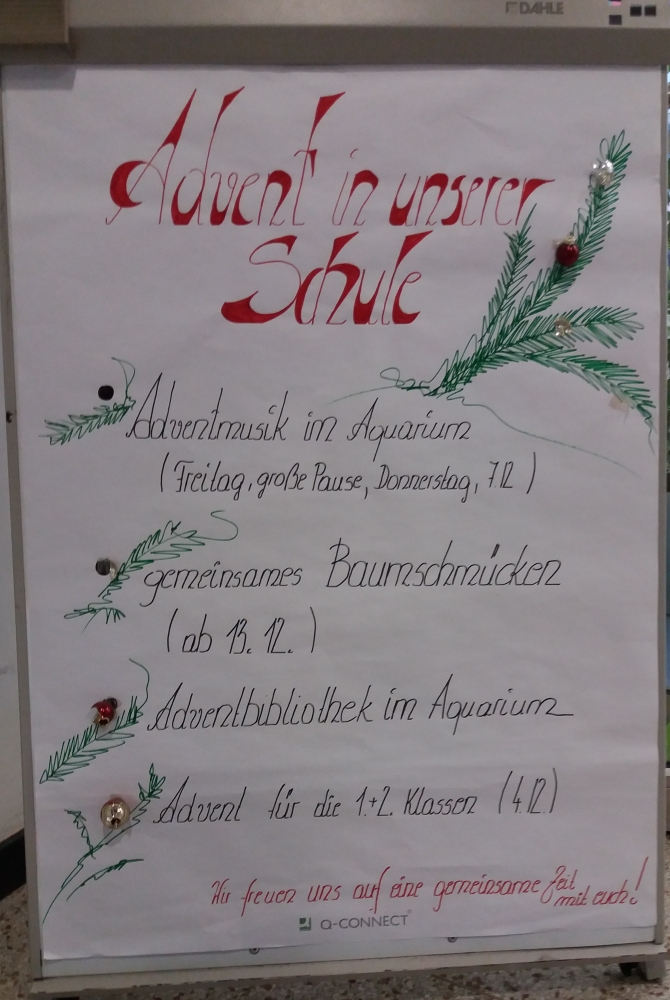 DAHLE
Advent in unserer
Schule
Adventmusik im Aquarium
(Freitag, große Pause, Donnerstag, 7.12)
gemeinsames Baumschmücken
(ab 13. 12.)
Adventbibliothek im Aquarium
Advent für die 1.+2. Klassen (4.12)
Wir freuen uns auf eine gemeinsame Zeit
mit euch!
Q-CONNECT